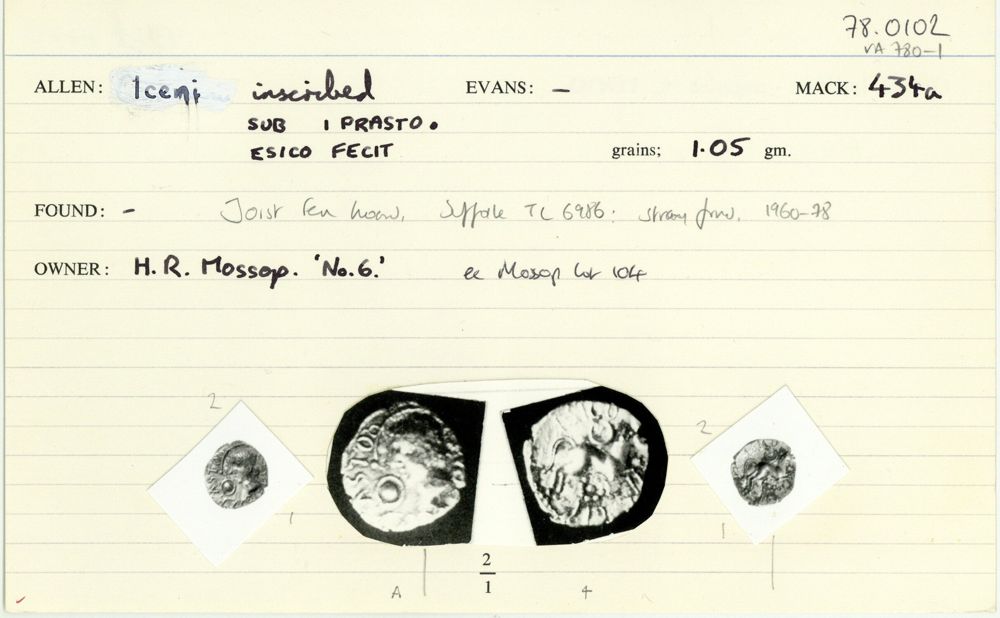 78.0102
VA 780-1
ALLEN: Iceni inscribed EVANS: - MACK: 434a
SUB I PRASTO.
ESICO FECIT grains; 1.05 gm.
FOUND: - Joist Fen hoard, Suffolk TL 6986: stray find. 1960-78
OWNER: H. R. Mossop. 'No. 6.' ex Mossop lot 104
2 2
1 1
2
1
A 4